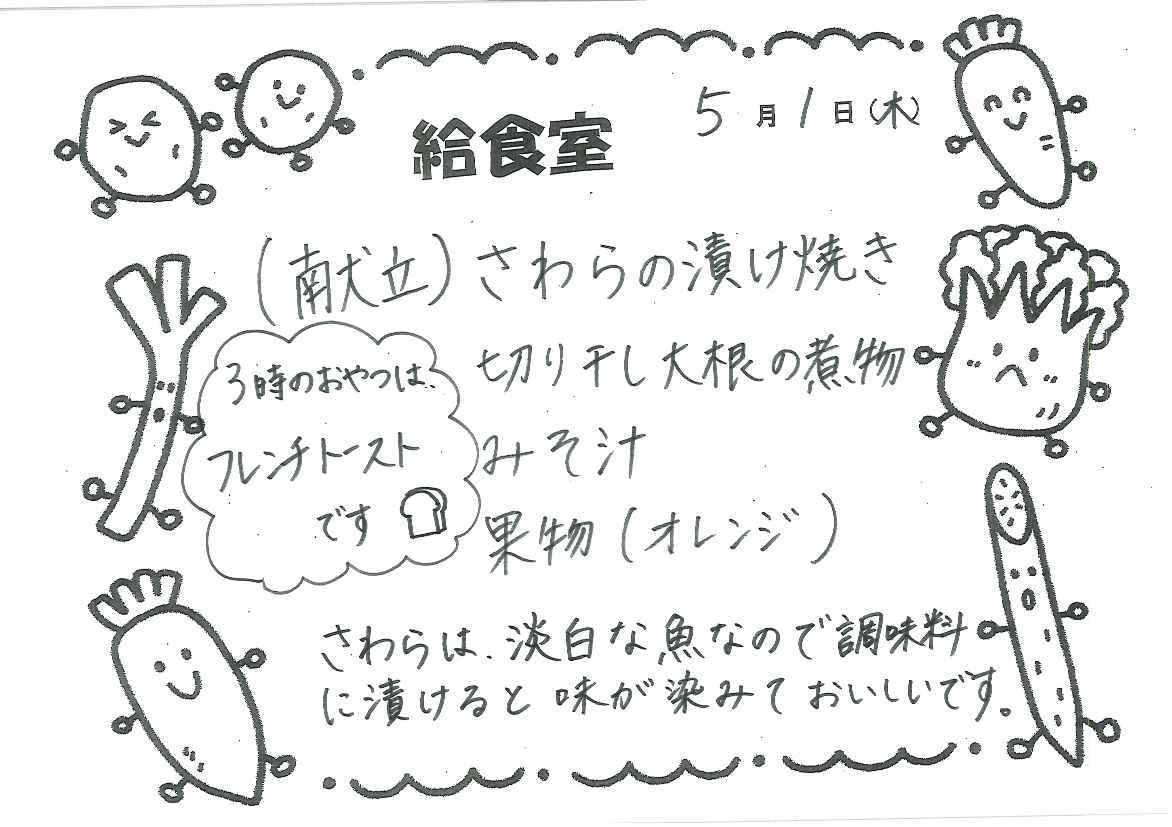 給食室
5月1日(木)
(献立)さわらの漬け焼き
切り干し大根の煮物
みそ汁
果物(オレンジ)
3時のおやつは、
フレンチトースト
です
さわらは、淡白な魚なので調味料
に漬けると味が染みておいしいです。